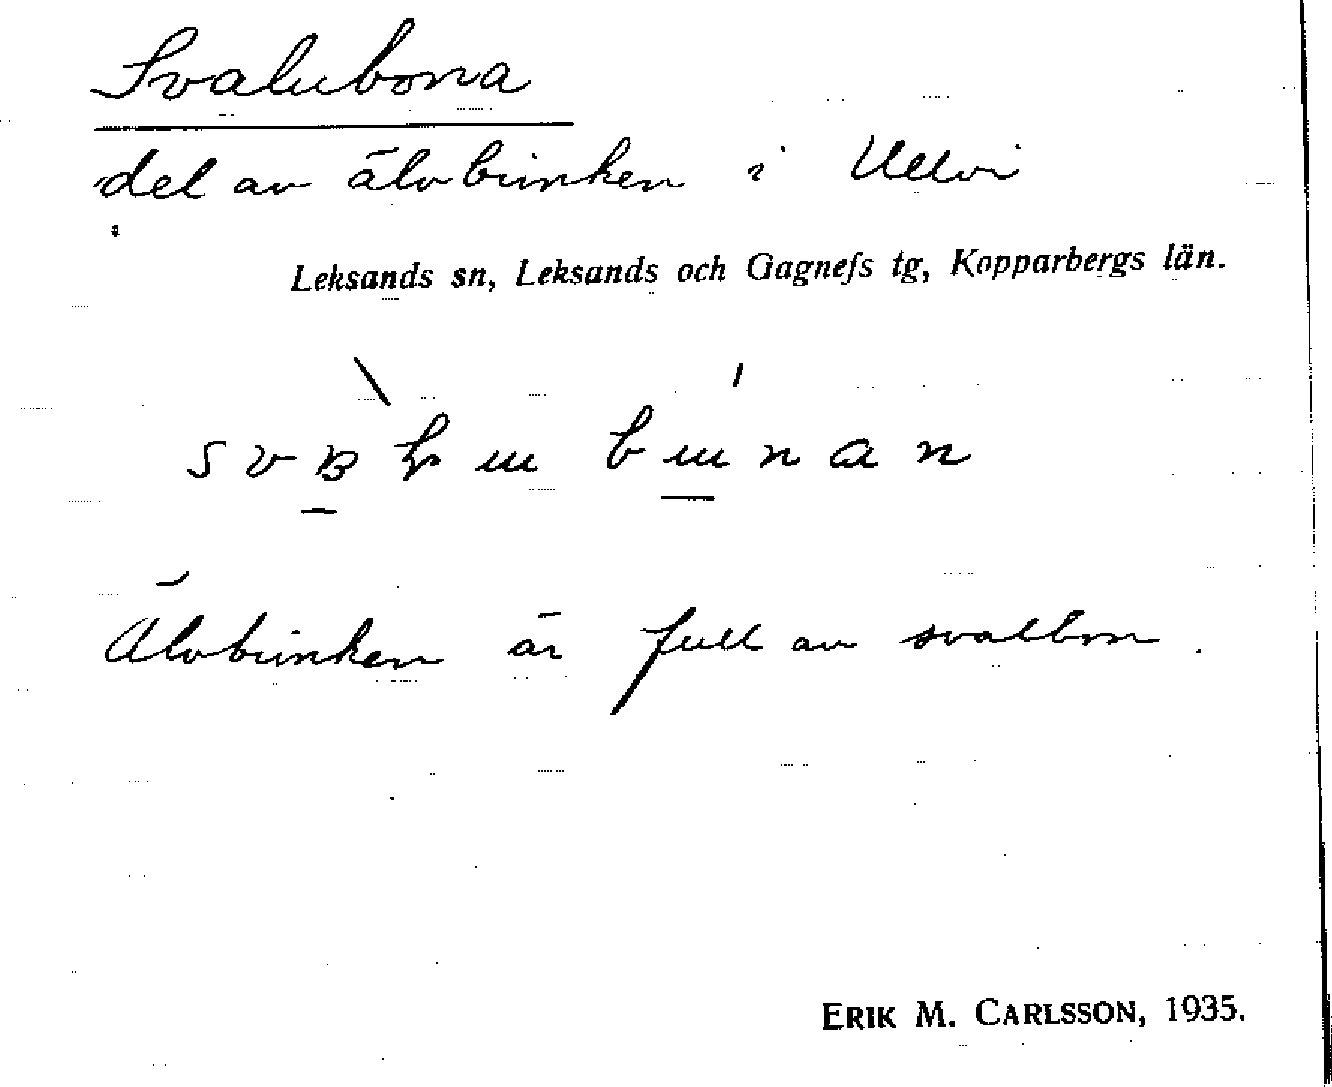 Svalubona
del av älvbrinken i Ullvi
i
Leksands sn, Leksands och Gagnefs tg, Kopparbergs län.
Älvbrinken är full av svalbon.
ERIK M. CARLSSON, 1935.